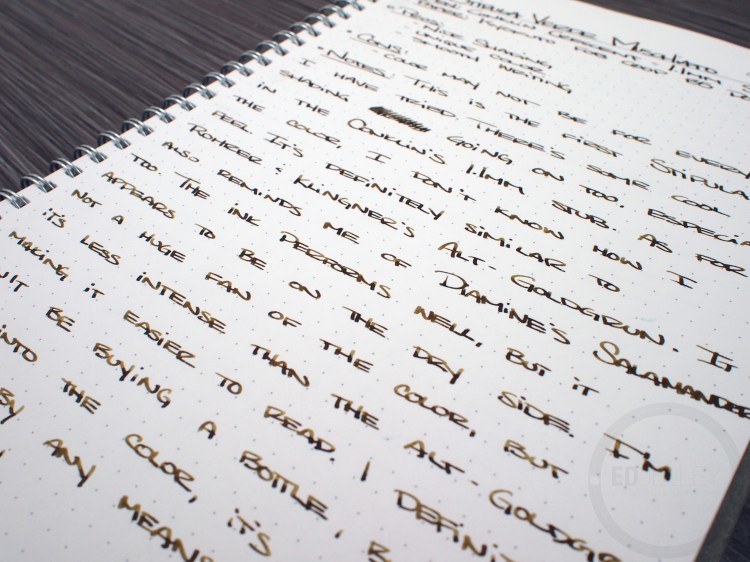 Stipula Verde Muschiato
Conklin Crescent - 1.1mm S
Pros: Nice Shading
Unique Color
Smooth Writing
Cons:
Color may not be for every
Notes: This is the first Stipula
I have tried. There's some cool
shading going on too, especia
in the Conklin's 1.1mm stub. As for
the color, I don't know how I
feel. It's definitely similar to
Rohrer & Klingner's Alt-Goldgrun. It
also reminds me of Diamine's Salamander
too. The ink performs well, but it
appears to be on the dry side. I'm
not a huge fan of the color, but
it's less intense than the Alt-Goldgr
making it easier to read. I definit
be buying a bottle, b
into the color, it's
by any means